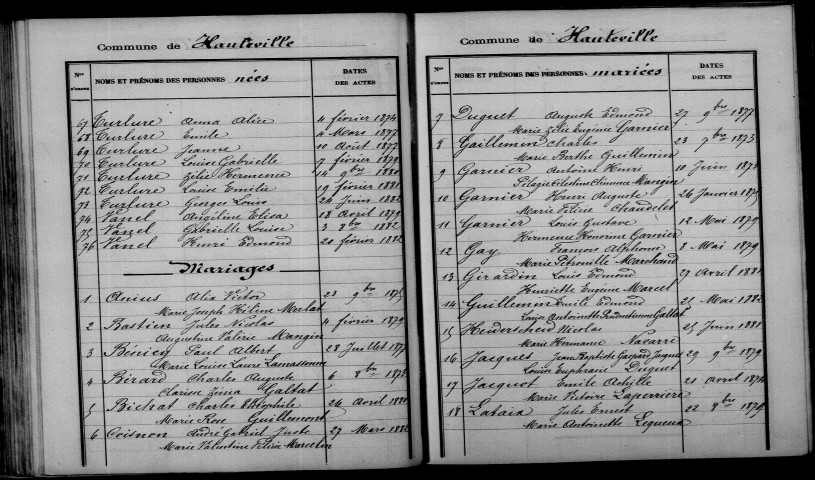 Commune de Hauteville
Nos d'ordre NOMS ET PRÉNOMS DES PERSONNES nées DATES DES ACTES
67 Turlure Anna Alice 4 février 1874
68 Turlure Emile 4 Mars 1877
69 Turlure Jeanne 10 Août 1877
70 Turlure Louise Gabrielle 7 février 1879
71 Turlure Zélie Hermence 14 9bre 1880
72 Turlure Louise Emilie 19 février 1881
73 Turlure Georges Louis 24 Juin 1882
74 Vanel Angéline Elisa 18 Avril 1879
75 Vanel Gabrielle Louise 3 8bre 1882
76 Vanel Henri Edmond 20 février 1882
Mariages
1 Anius Alix Victor 23 9bre 1875
Marie Joseph Hélène Merlat
2 Bastien Jules Nicolas 4 février 1879
Augustine Valérie Mangin
3 Bénicy Paul Albert 28 Juillet 1877
Marie Louise Laure Lamassenne
4 Bérard Charles Auguste 6 8bre 1878
Clarisse Zénia Galtat
5 Bichat Charles Théophile 26 Avril 1880
Marie Rose Guillemont
6 Coisnon André Gabriel Juste 27 Mars 1882
Marie Valentine Félicie Marcelin
Commune de Hauteville
Nos d'ordre NOMS ET PRÉNOMS DES PERSONNES mariées DATES DES ACTES
7 Duguet Auguste Edmond 27 9bre 1877
Marie Zélie Eugénie Garnier
8 Gaillemin Charles 23 7bre 1873
Marie Berthe Guillemin
9 Garnier Antoine Henri 10 Juin 1874
Pélagie Célestine Clémence Mangin
10 Garnier Henri Auguste 26 Janvier 1875
Marie Céline Chaudelet
11 Garnier Louis Gustave 12 Mai 1879
Hermence Honorine Garnier
12 Gay François Alphonse 8 Mai 1879
Marie Pétronille Marchand
13 Girardin Louis Edmond 27 Avril 1881
Henriette Eugénie Marcel
14 Guillemin Emile Edmond 21 Mai 1882
Louise Antoinette Prudentienne Galtat
15 Heiderscheid Nicolas 25 Juin 1881
Marie Hermance Navarre
16 Jacques Jean Baptiste Gaspard Jacquet 29 9bre 1879
Louise Euphrasie Diguet
17 Jacquot Emile Achille 21 Avril 1874
Marie Victoire Laperrière
18 Lataia Jules Ernest 22 8bre 1879
Marie Antoinette Lequeux